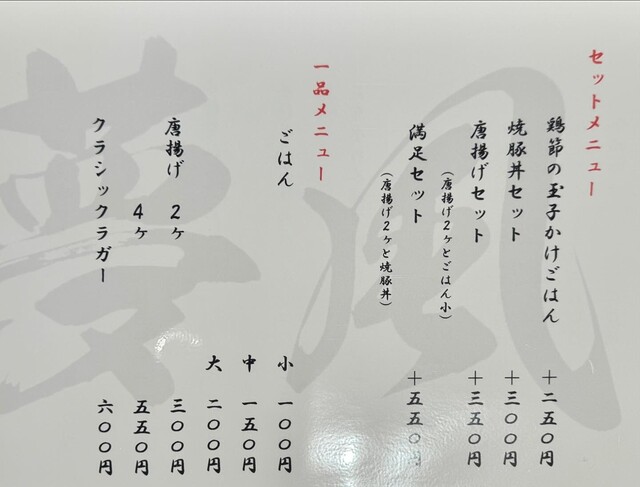 セットメニュー
鶏節の玉子かけごはん ＋二五〇円
焼豚丼セット ＋三〇〇円
唐揚げセット ＋三五〇円
（唐揚げ２ヶとごはん小）
満足セット ＋五五〇円
（唐揚げ２ヶと焼豚丼）
一品メニュー
ごはん 小 一〇〇円
中 一五〇円
大 二〇〇円
唐揚げ ２ヶ 三〇〇円
４ヶ 五五〇円
クラシックラガー 六〇〇円
夢風